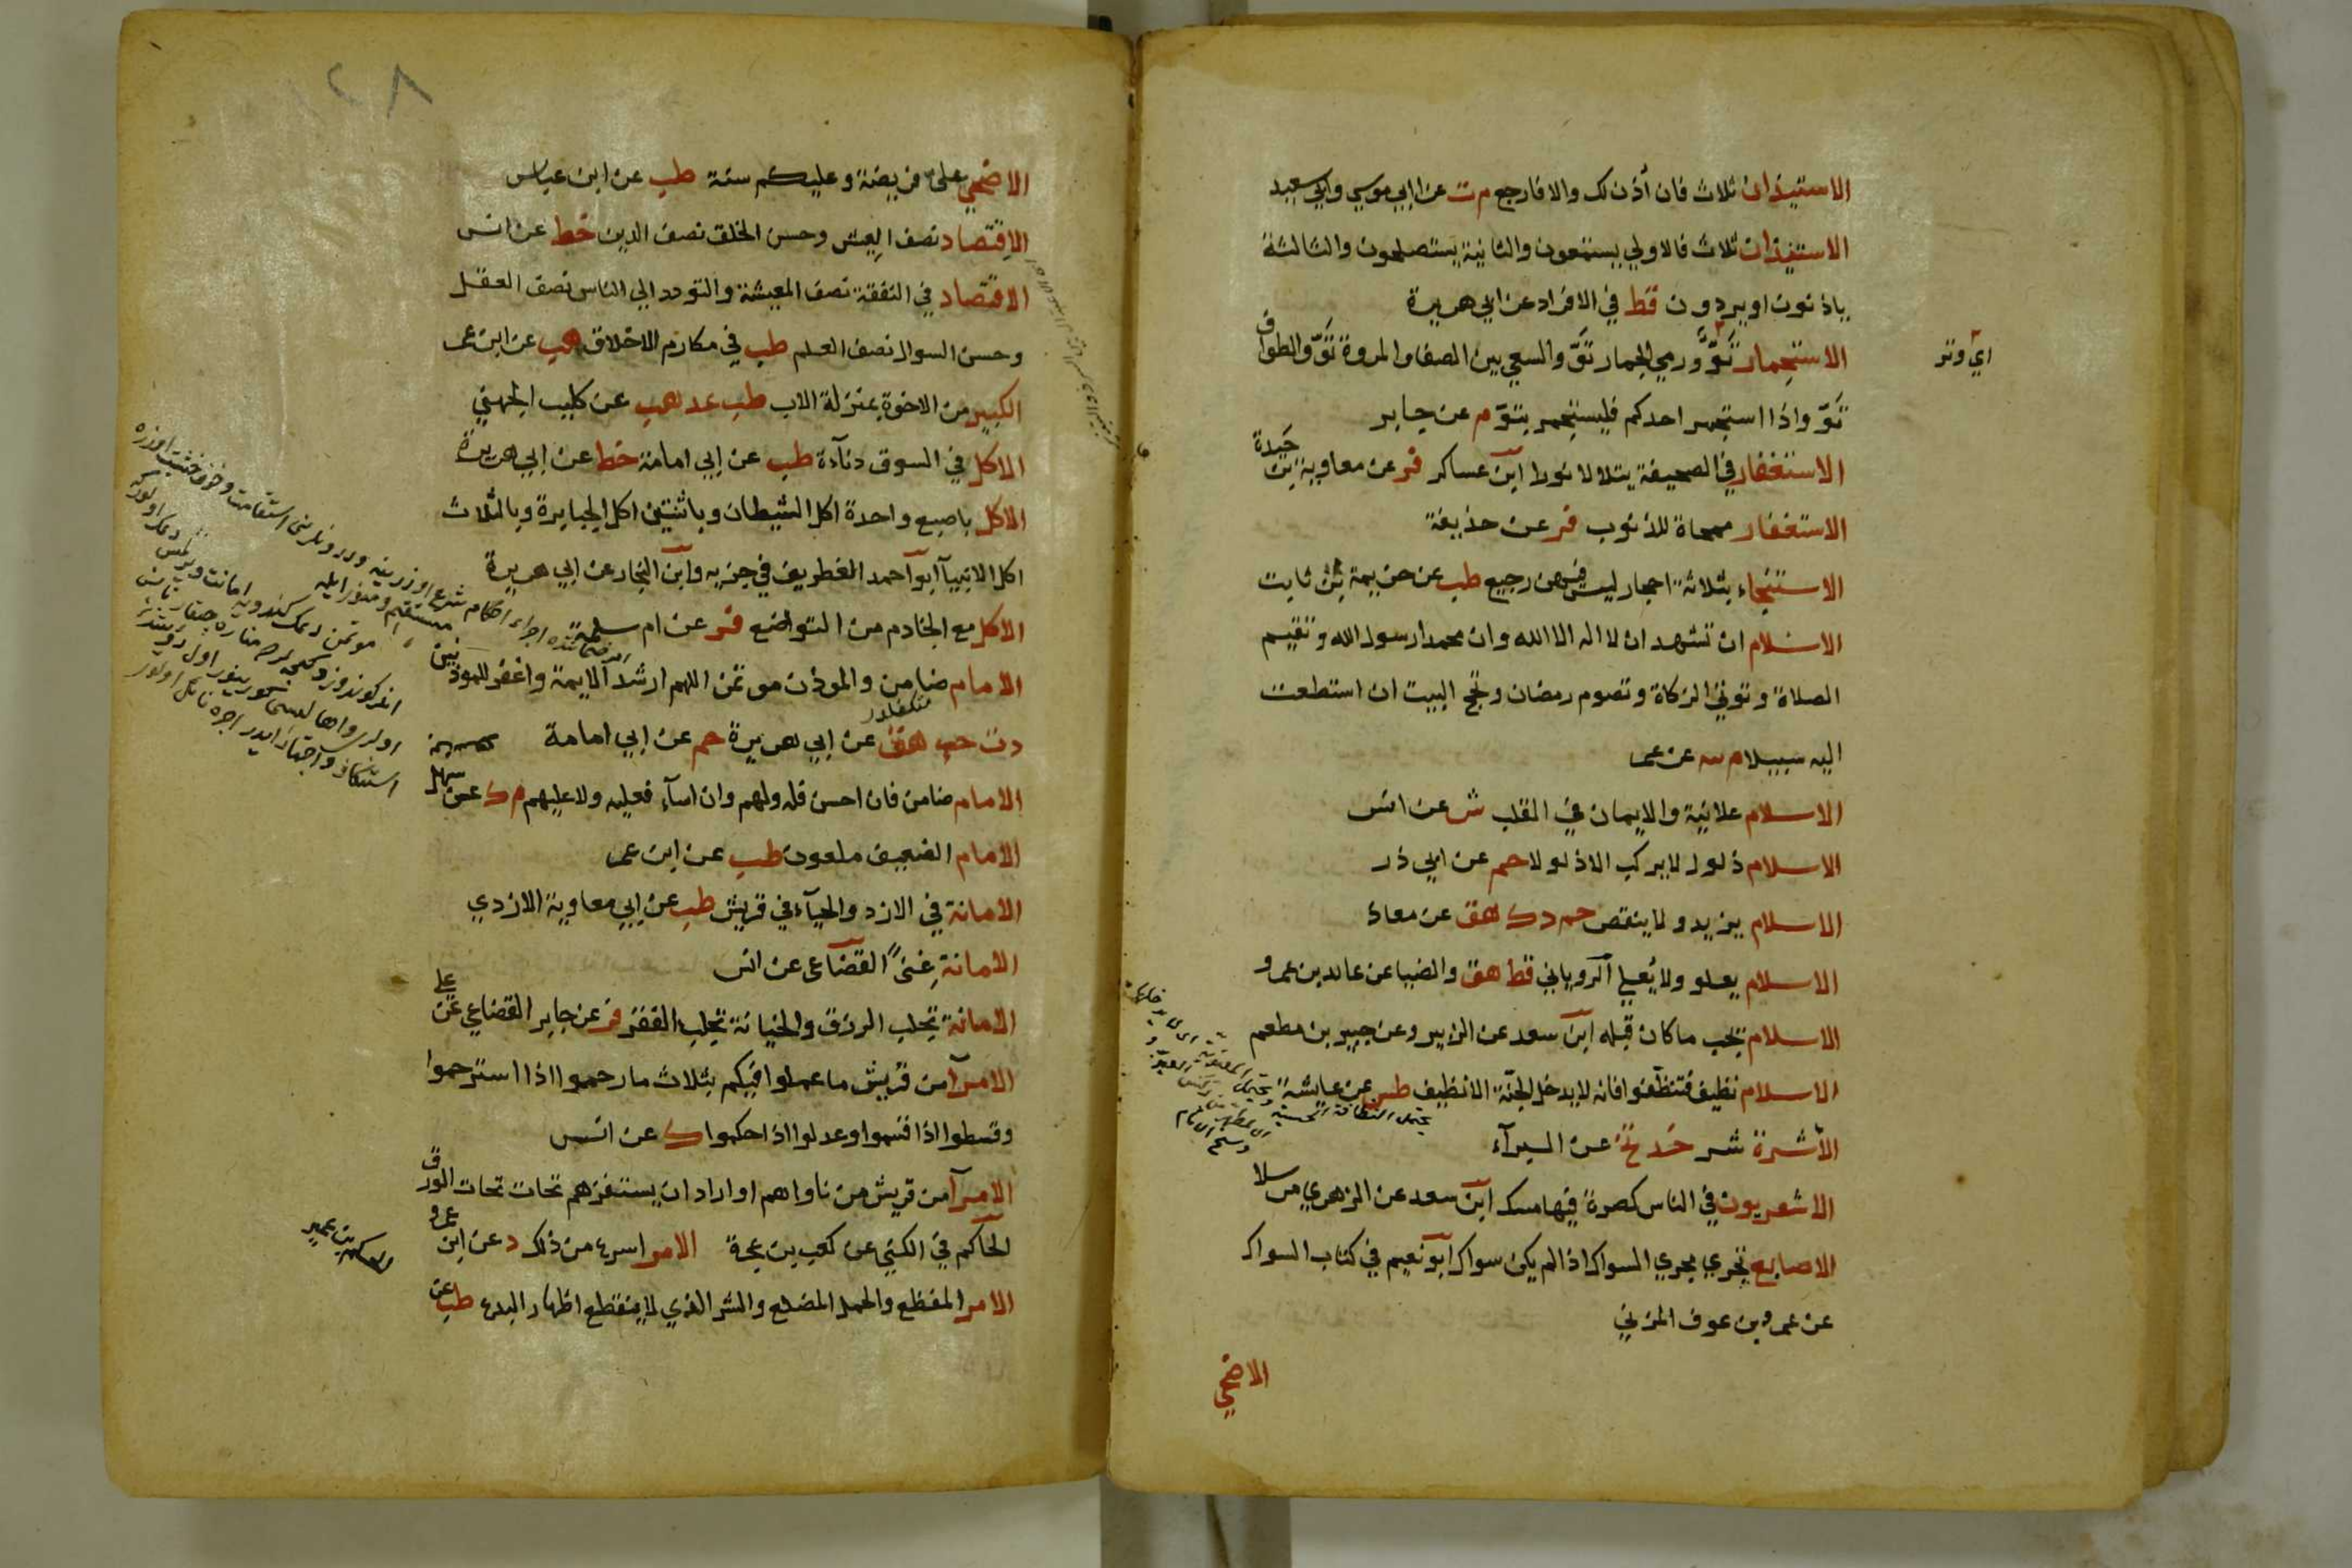 الاستيذان ثلاث فان أذن لك والا فارجع م ت عن ابي موسي وابي سعيد
الاستيذان ثلاث فالاولي يستمعون والثانية يستصلحون والثالثة
ياذنون او يردون قط في الافراد عن ابي هريرة
الاستجمار تَوّ ورمي الجمار تَوّ والسعي بين الصفا والمروة تَوّ والطواف
اي وتر
تَوّ واذا استجمر احدكم فليستجمر بتوّ م عن جابر
الاستغفار في الصحيفة يتلالا نورا ابن عساكر فر عن معاوية بن حَيدة
الاستغفار ممحاة للذنوب فر عن حذيفة
الاستنجاء بثلاثة احجار ليس فيهن رجيع طب عن خزيمة بن ثابت
الاسلام ان تشهد ان لا اله الا الله وان محمدا رسول الله وتقيم
الصلاة وتوتي الزكاة وتصوم رمضان وتحج البيت ان استطعت
اليه سبيلا م عن عمر
الاسلام علانية والايمان في القلب ش عن انس
الاسلام ذلول لا يركب الا ذلولا حم عن ابي ذر
الاسلام يزيد ولا ينقص حم د ك هق عن معاذ
الاسلام يعلو ولا يُعلي الروياني قط هق والضيا عن عائذ بن عمرو
الاسلام يجُب ما كان قبله ابن سعد عن الزبير وعن جبير بن مطعم
الاسلام نظيف فتنظفوا فانه لا يدخل الجنّة الا نظيف طس عن عايشة
الأشرة شر خد عن البرآء
الاشعريون في الناس كصرة فيها مسك ابن سعد عن الزهري مرسلا
الاصابع تجري مجري السواك اذا لم يكن سواك ابو نعيم في كتاب السواك
عن عمرو بن عوف المزني
الاضحي
٢٨
الاضحي علي فريضة وعليكم سنة طب عن ابن عباس
الاقتصاد نصف العيش وحسن الخلق نصف الدين خط عن انس
الاقتصاد في النفقة نصف المعيشة والتودد الي الناس نصف العقل
وحسن السوال نصف العلم طب في مكارم الاخلاق هب عن ابن عمر
الكبير من الاخوة بمنزلة الاب طب عد هب عن كليب الجهني
الاكل في السوق دنآءة طب عن ابي امامة خط عن ابي هريرة
الاكل باصبع واحدة اكل الشيطان وباثنتين اكل الجبابرة وبالثلاث
اكل الانبيآ ابو احمد الغطريف في جزيه وابن النجار عن ابي هريرة
الاكل مع الخادم من التواضع فر عن ام سلمة
الامام ضامن والموذن موتمن اللهم ارشد الايمة واغفر للموذنين
د ت حب هق عن ابي هريرة حم عن ابي امامة
الامام ضامن فان احسن فله ولهم وان اسآء فعليه ولا عليهم م ك عن سهل
الامام الضعيف ملعون طب عن ابن عمر
الامانة في الازد والحيآء في قريش طب عن ابي معاوية الازدي
الامانة غِنيً القضاعي عن انس
الامانة تجلب الرزق والخيانة تجلب الفقر فر عن جابر القضاعي عن علي
الامرآ من قريش ما عملوا فيكم بثلاث ما رحموا اذا استرحموا
وقسطوا اذا قسموا وعدلوا اذا حكموا ك عن انس
الامرآ من قريش من ناواهم او اراد ان يستفزهم تحات تحات الورق
الحاكم في الكني عن كعب بن عجرة الامر اسرع من ذلك د عن ابن عمرو
الامر المفظع والحمل المضلع والشر الذي لا ينقطع اظهار البدع طب عن